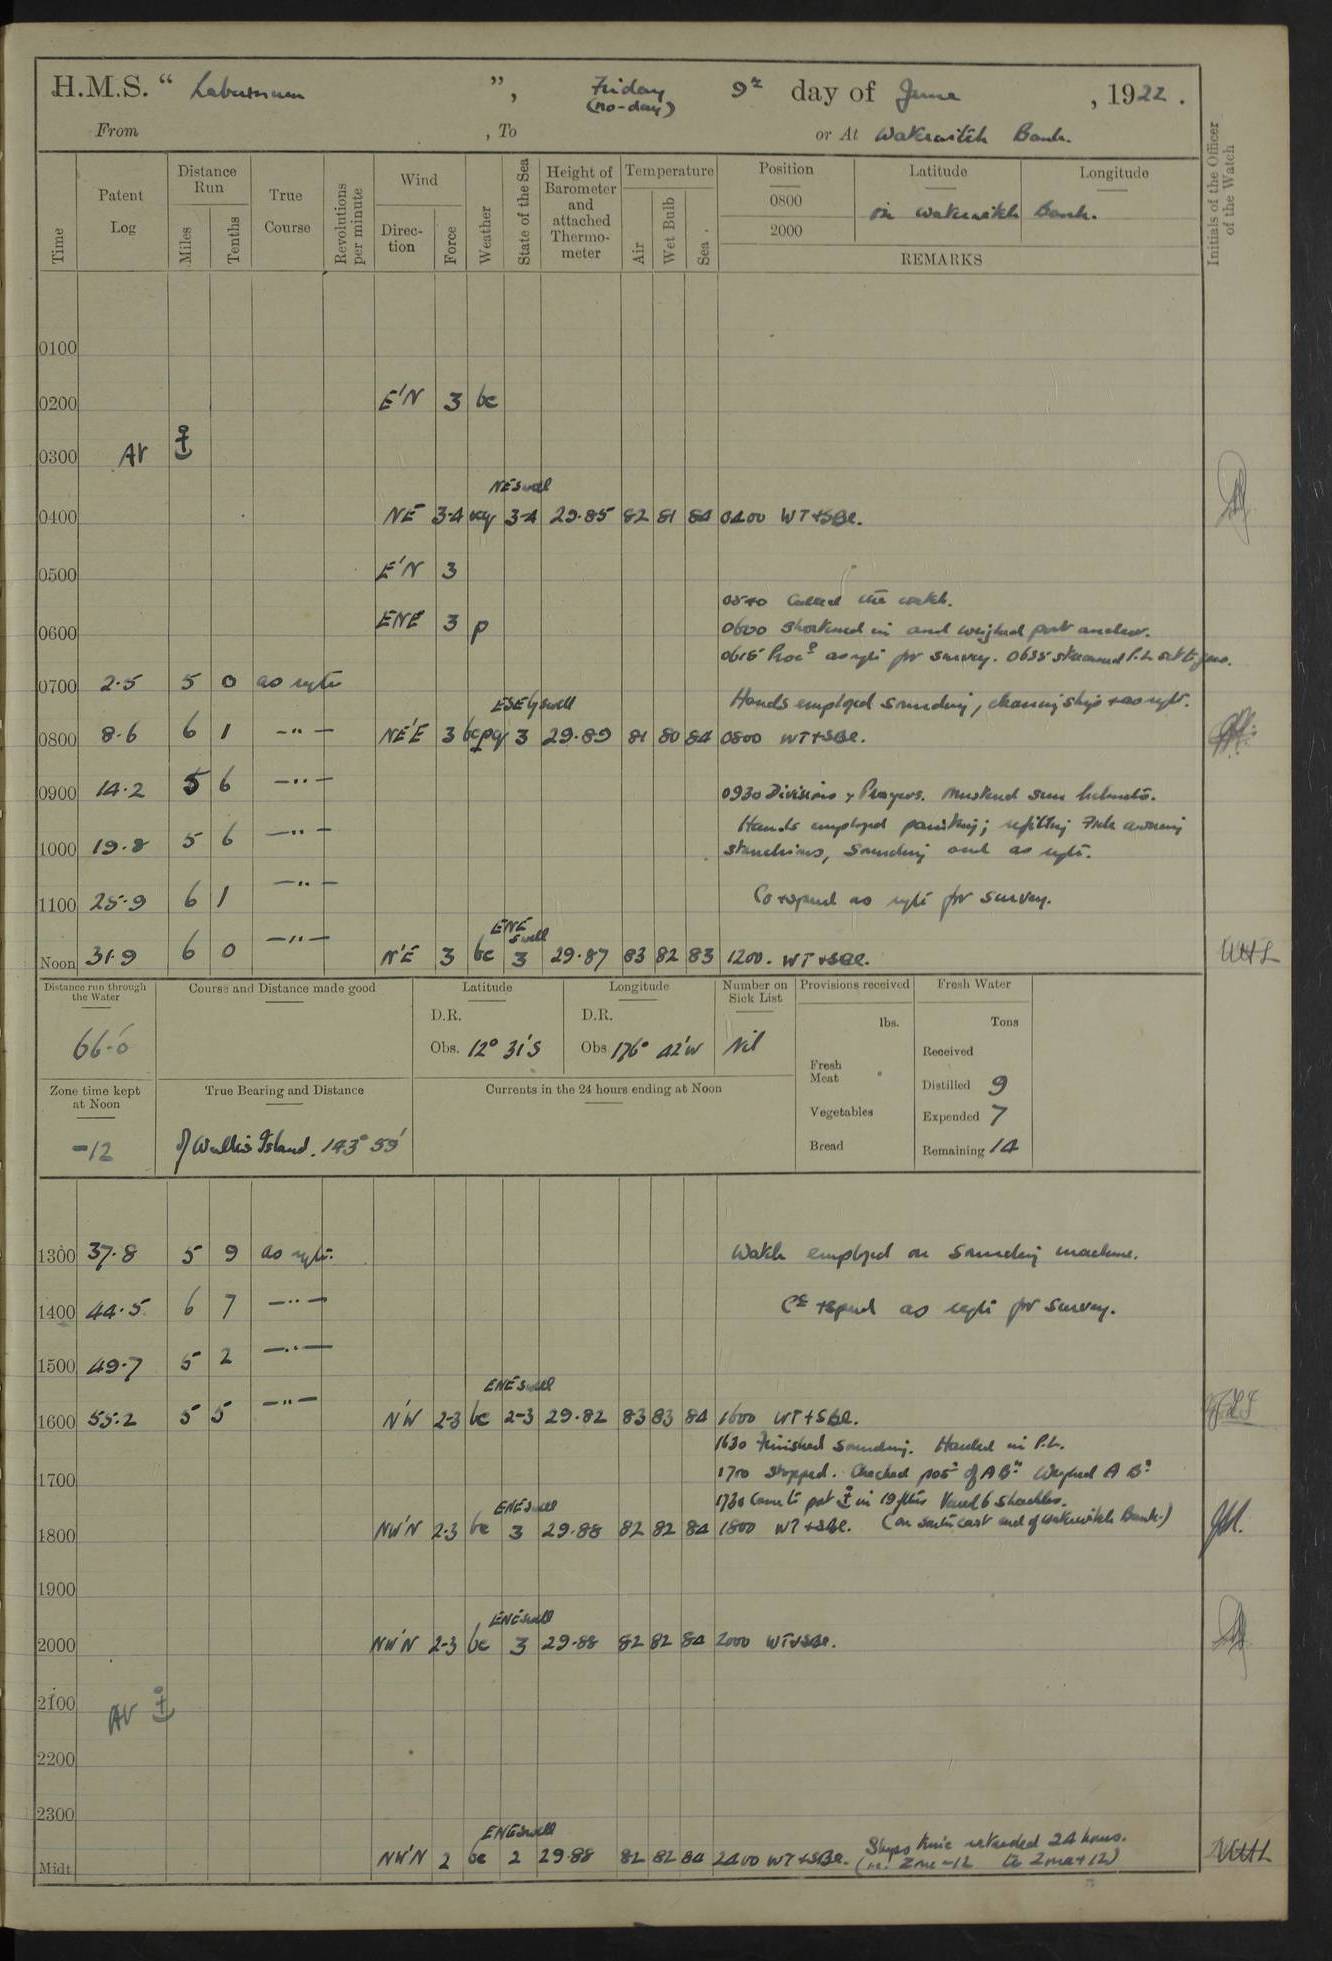 H.M.S. “ Laburnum ”, Friday 9th day of June , 1922 .
(no-day)
From , To or At Waterwitch Bank.
Time
Patent Log
Distance Run
Miles
Tenths
True Course
Revolutions per minute
Wind
Direction
Force
Weather
State of the Sea
Height of Barometer and attached Thermometer
Temperature
Air
Wet Bulb
Sea .
Position
0800
2000
Latitude
Longitude
on Waterwitch Bank.
REMARKS
Initials of the Officer of the Watch
0100
0200 E'N 3 bc
0300 At
NE swell
0400 NE 3-4 3-4 29.85 82 81 84 0400 WT+SBE.
0500 E'N 3
0540 Called the watch.
0600 ENE 3 p 0600 Shortened in and weighed port anchor.
0615 Proc^d as rqte for survey. 0635 streamed P.L. set to zero.
0700 2.5 5 0 as rqte
Hands employed sounding, cleaning ship + as rqte.
ESE'ly swell
0800 8.6 6 1 —"— NE'E 3 bcpq 3 29.89 81 80 84 0800 WT+SBE.
0900 14.2 5 6 —"— 0930 Divisions & Prayers. Mustered sun helmets.
Hands employed painting; refitting awning
1000 19.8 5 6 —"— stanchions, sounding and as rqte.
1100 25.9 6 1 —"— Co +speed as rqte for survey.
ENE swell
Noon 31.9 6 0 —"— N'E 3 bc 3 29.87 83 82 83 1200. WT+SBE.
Distance run through the Water
66.6
Course and Distance made good
Latitude
D.R.
Obs. 12° 31'S
Longitude
D.R.
Obs 176° 42'W
Number on Sick List
Nil
Provisions received
lbs.
Fresh Meat
Vegetables
Bread
Fresh Water
Tons
Received
Distilled 9
Expended 7
Remaining 14
Zone time kept at Noon
-12
True Bearing and Distance
of Wallis Island. 143° 55'
Currents in the 24 hours ending at Noon
1300 37.8 5 9 as rqte. Watch employed on sounding machine.
1400 44.5 6 7 —"— C^e +speed as rqte for survey.
1500 49.7 5 2 —"—
ENE swell
1600 55.2 5 5 —"— N'W 2-3 bc 2-3 29.82 83 83 84 1600 WT+SBE.
1630 Finished sounding. Hauled in P.L.
1700 1700 Stopped. Checked pos^n of A B^n Weighed A B^n
1730 Came to port in 19 fths Veered 6 shackles.
ENE swell
1800 NW'N 2-3 bc 3 29.88 82 82 84 1800 WT+SBE. (on south east end of Waterwitch Bank.)
1900
ENE swell
2000 NW'N 2-3 bc 3 29.88 82 82 84 2000 WT+SBE.
2100 At
2200
2300
ENE swell
Midt NW'N 2 bc 2 29.88 82 82 84 2400 WT+SBE. Ships time retarded 24 hours.
(i.e. Zone -12 to Zone +12)